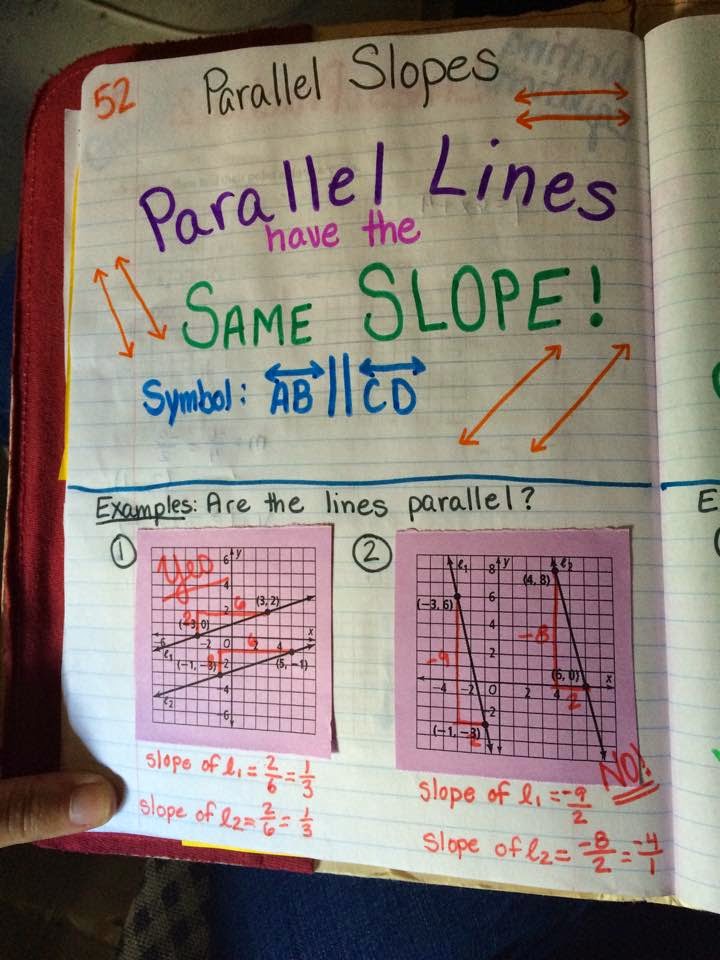 52
Parallel Slopes
Parallel Lines
have the
SAME SLOPE!
Symbol: AB || CD
Examples: Are the lines parallel?
1
Yes
6
y
4
2
6
(3, 2)
2
(-3, 0)
-6
-2
0
6
4
x
l1
(-1, -3)
2
(5, -1)
-4
l2
-6
slope of l1 = 2/6 = 1/3
slope of l2 = 2/6 = 1/3
2
l1
8
y
l2
(4, 8)
(-3, 6)
6
4
-8
2
-9
(6, 0)
x
-4
-2
0
4
2
2
(-1, -3)
2
NO!
slope of l1 = -9/2
Slope of l2 = -8/2 = -4/1
E